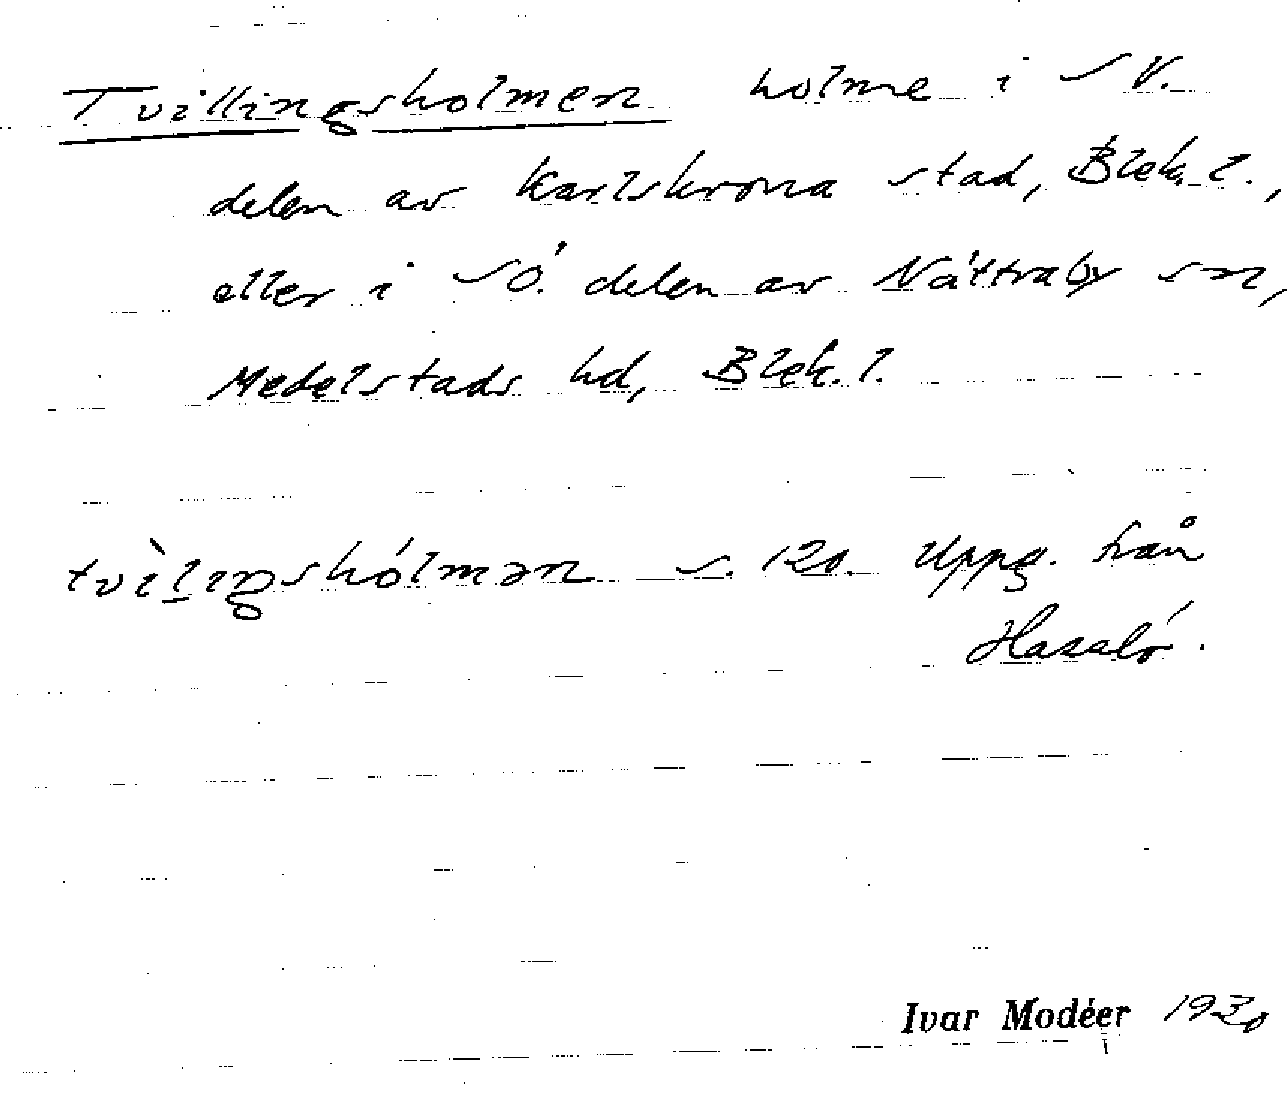 Tvillingsholmen holme i SV.
delen av Karlskrona stad, Blek. l.,
eller i SÖ. delen av Nättraby sn,
Medelstads hd, Blek. l.
tvìlıŋshólmən s. 120. Uppg. från
Hasslö.
Ivar Modéer 1930